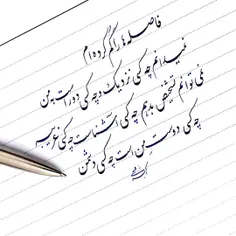 فاصله ها را گم کرده ام
نمیدانم چه کسی نزدیک و چه کسی دور است به من
نمی توانم تشخیص بدهم چه کسی آشناست چه کسی غریب
چه کسی دوست من است چه کسی دشمن